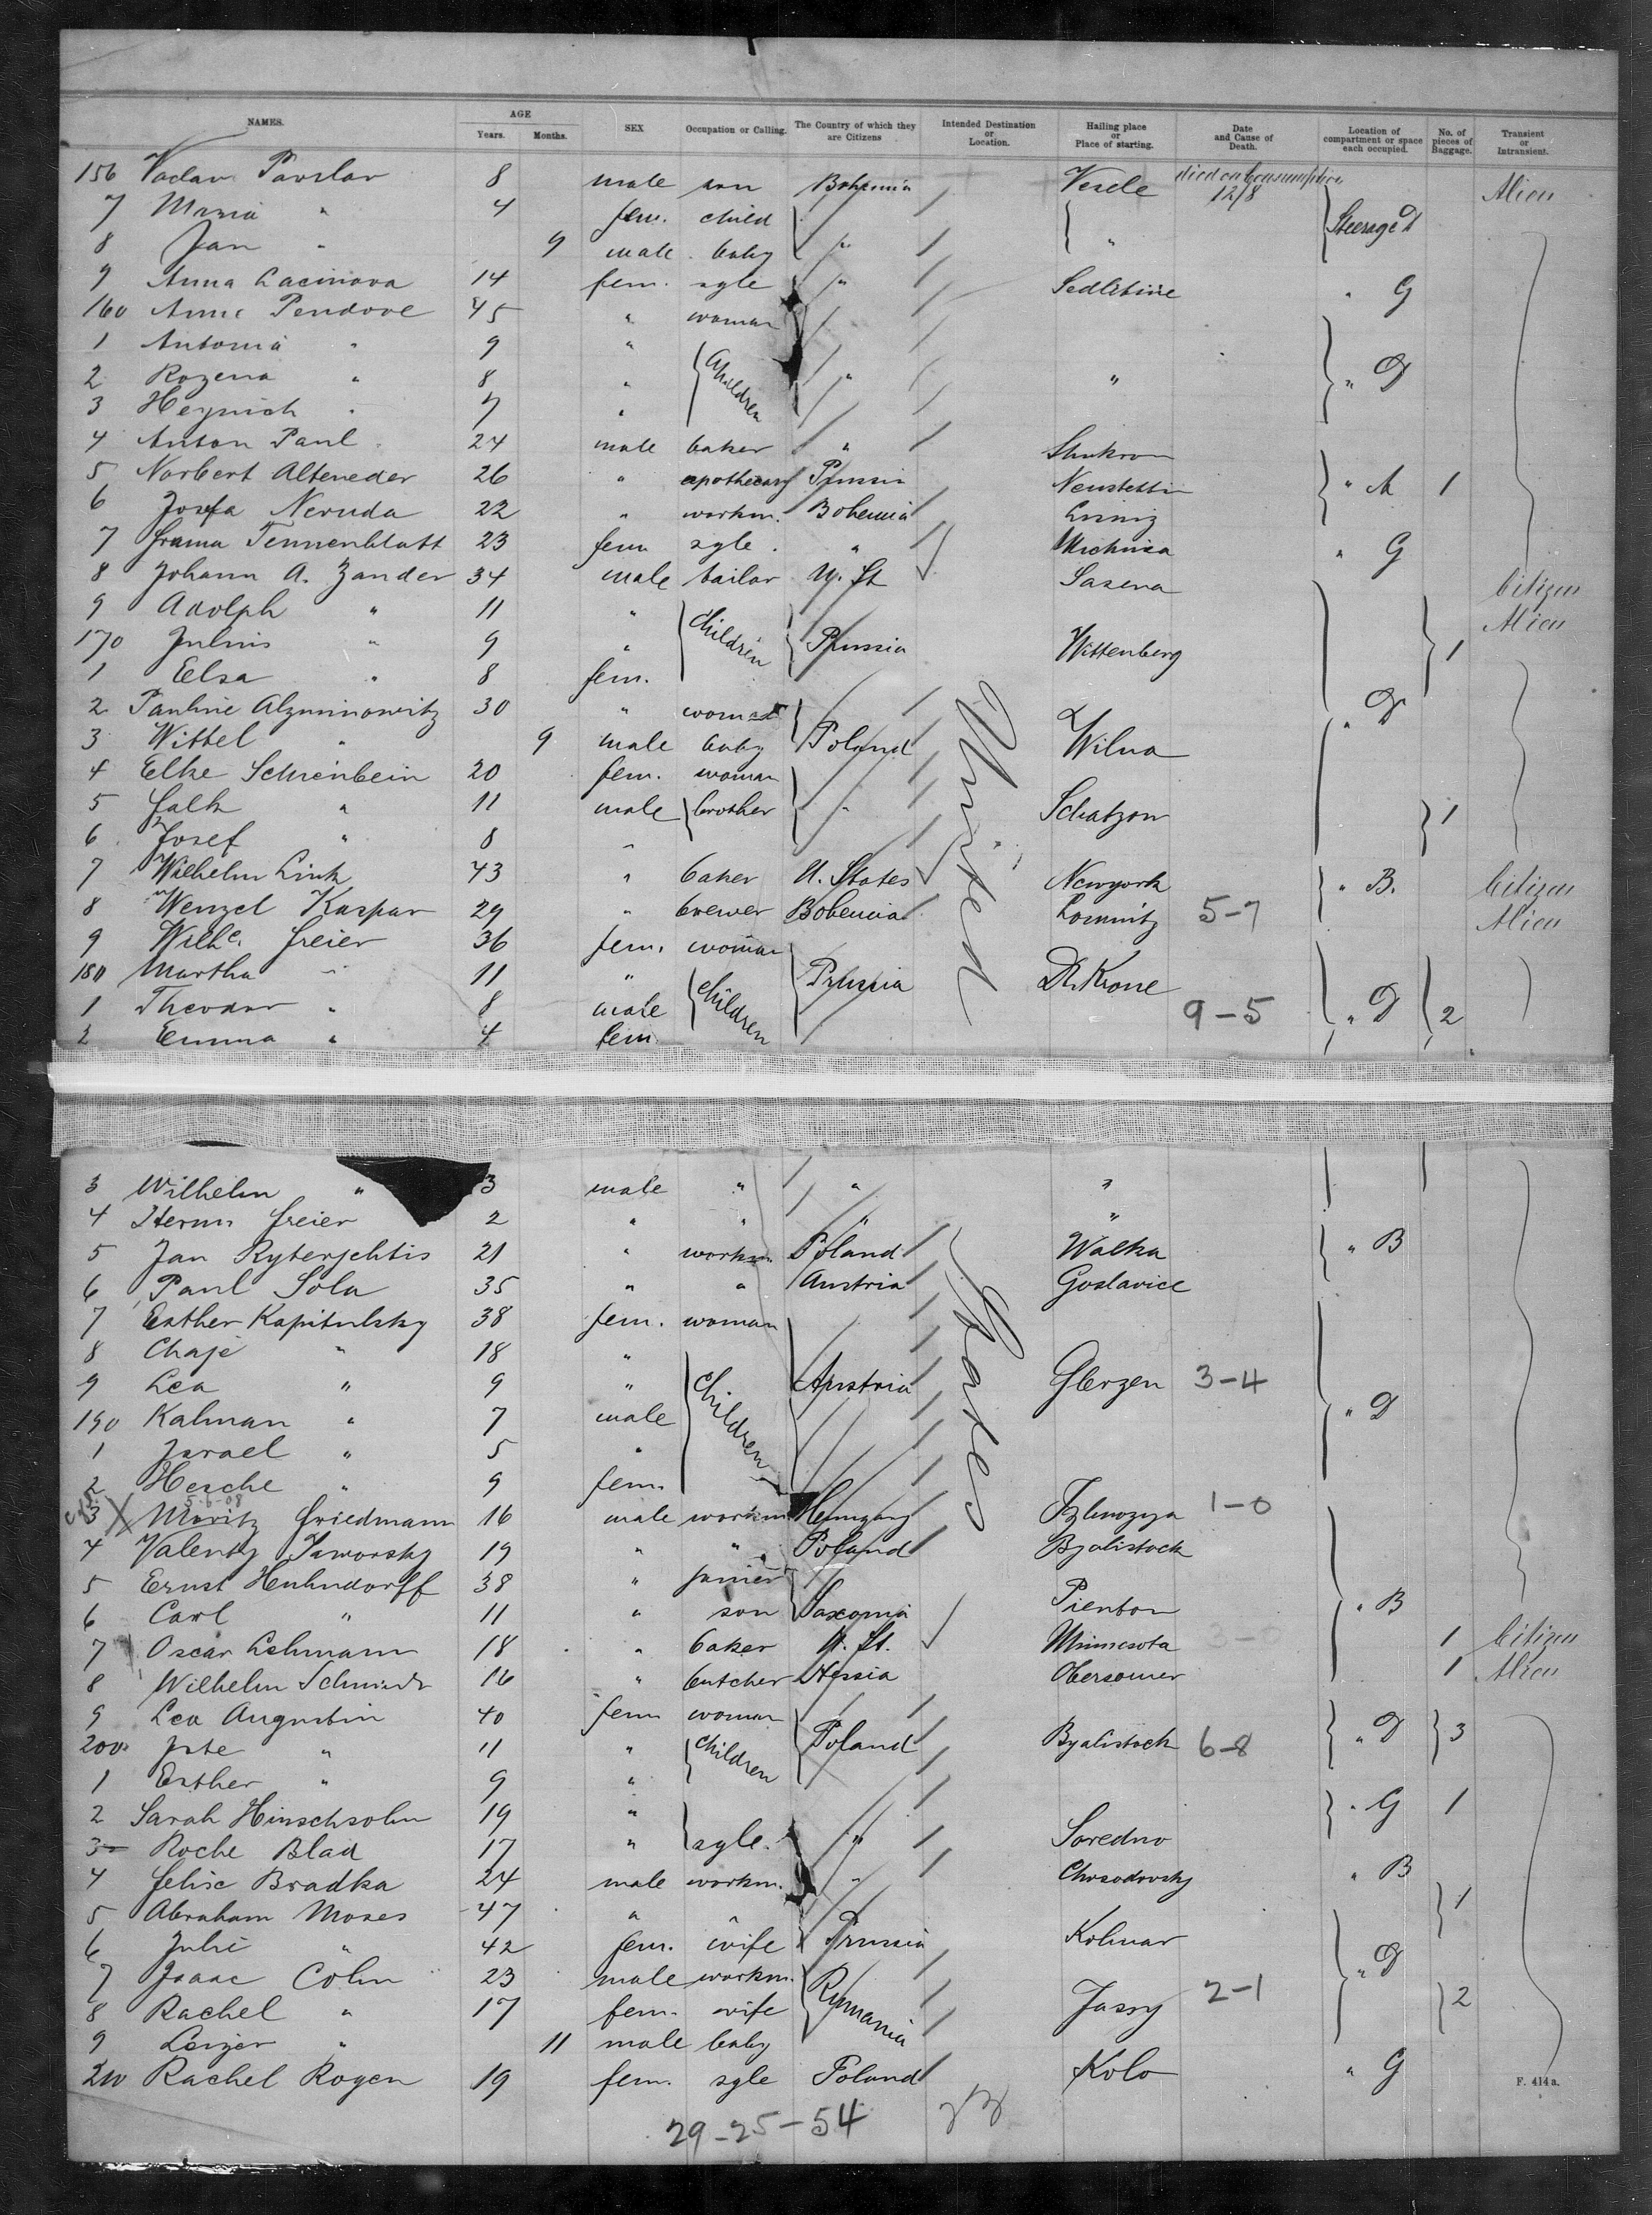 NAMES. AGE Years. Months. SEX Occupation or Calling. The Country of which they are Citizens Intended Destination or Location. Hailing place or Place of starting. Date and Cause of Death. Location of compartment or space each occupied. No. of pieces of Baggage. Transient or Intransient.
156 Vaclav Pavslav 8 male son Bohemia Vesele died on Consumption 12/8 Alien
7 Maria " 4 fem. child Steerage D
8 Jan " 9 male baby " "
9 Anna Lacinova 14 fem. sgle " Sedlitine " G
160 Anna Pendove 45 " woman
1 Antonia " 9 " Children
2 Rozena " 8 " " " " D
3 Heynich " 7 "
4 Anton Paul 24 male baker "
5 Norbert Alteneder 26 " apothecary Prussia Neustettin " A 1
6 Josefa Neruda 22 " workm. Bohemia
7 Tennenblatt 23 fem sgle " " G
8 Johann A. Zander 34 male tailor U. St Sasena Citizen
9 Adolph " 11 " Children Alien
170 Julius " 9 " Prussia Wittenberg 1
1 Elsa " 8 fem.
2 Pauline Alzminowitz 30 " woman " D
3 Wittel " 9 male baby Poland Wilna
4 Elke Schienbein 20 fem. woman
5 Falk " 11 male brother " Schatzon 1
6 Josef " 8 "
7 Wilhelm Link 43 " baker U. States Newyork " B. Citizen
8 Wenzel Kaspar 29 " brewer Bohemia Lomnitz 5-7 Alien
9 Wilhe. Freier 36 fem. woman
180 Martha " 11 " children Prussia Dt. Krone
1 Theodor " 8 male 9-5 " D 2
2 Emma " 4 fem.
United
3 Wilhelm " 3 male " " "
4 Herm Freier 2 " " " "
5 Jan Ryterschtis 21 " workm Poland Walka " B
6 Paul Sola 35 " " Austria Goslavice
7 Esther Kapitulsky 38 fem. woman
8 Chaje " 18 "
9 Lea " 9 " Children Austria Glerzen 3-4
190 Kalman " 7 male " D
1 Israel " 5 "
2 Hesche " 9 fem.
States
5-6-08
3 X Moritz Friedmann 16 male workm Hungary 1-0
4 Valenty Jaworsky 19 " " Poland Byalistock
5 Ernst Huhndorff 38 " joiner
6 Carl " 11 " son Saxonia Pienton " B
7 Oscar Lehmann 18 " baker U. St. Minnesota 1 Citizen
8 Wilhelm Schmidt 16 " butcher Hessia Obersomer 1 Alien
9 Lea Augustin 40 fem woman
200 Jste " 11 " children Poland Byalistock 6-8 " D 3
1 Esther " 9 "
2 Sarah Hirschsohn 19 " " G 1
3 Roche Blad 17 " sgle. " Soredno
4 Felix Bradka 24 male workm. " " B
5 Abraham Moses 47 " " 1
6 Julie " 42 fem. wife Prussia Kolmar
7 Isaac Cohn 23 male workm. Rumania " D
8 Rachel " 17 fem. wife Jassy 2-1 2
9 Leizer " 11 male baby
210 Rachel Rogen 19 fem. sgle Poland Kolo " G
F. 414 a.
29-25-54